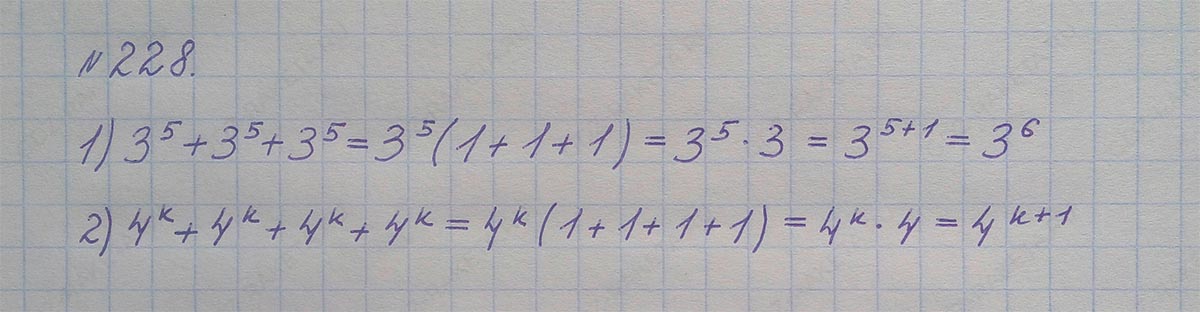 №228.
1) 3⁵+3⁵+3⁵=3⁵(1+1+1)=3⁵·3=3⁵⁺¹=3⁶
2) 4ᵏ+4ᵏ+4ᵏ+4ᵏ=4ᵏ(1+1+1+1)=4ᵏ·4=4ᵏ⁺¹